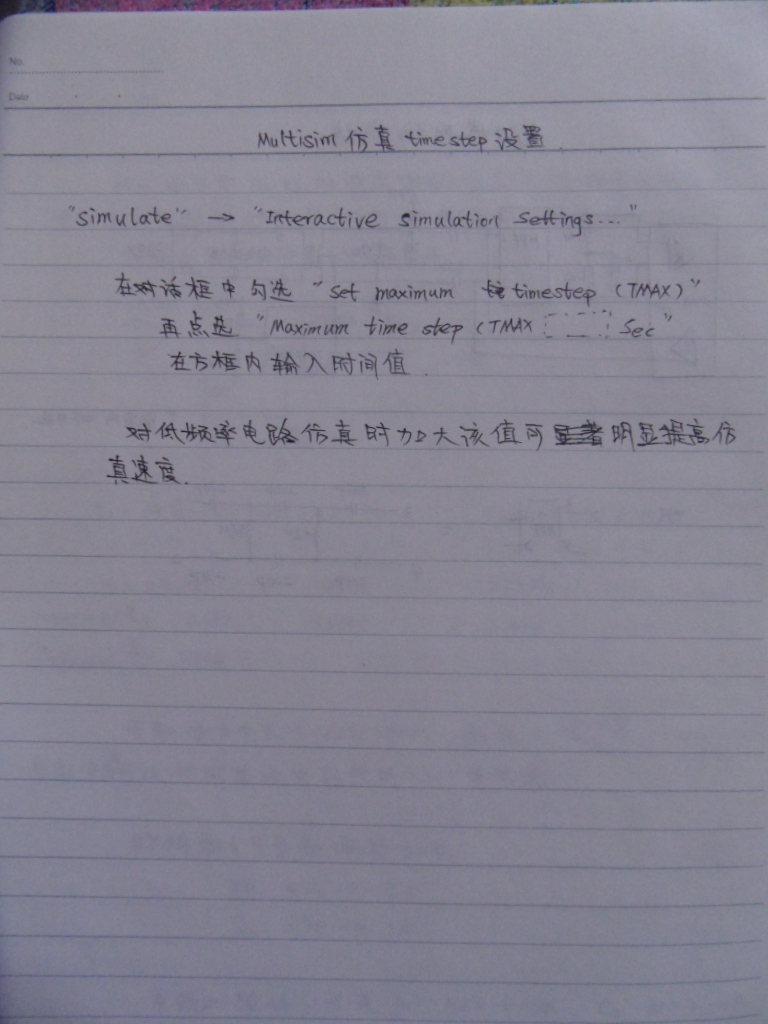 No.
Date
Multisim 仿真 timestep 设置
"Simulate" → "Interactive simulation Settings..."
在对话框中勾选 "Set maximum timestep (TMAX)"
再点选 "Maximum time step (TMAX Sec"
在方框内输入时间值.
对低频率电路仿真时加大该值可明显提高仿
真速度.